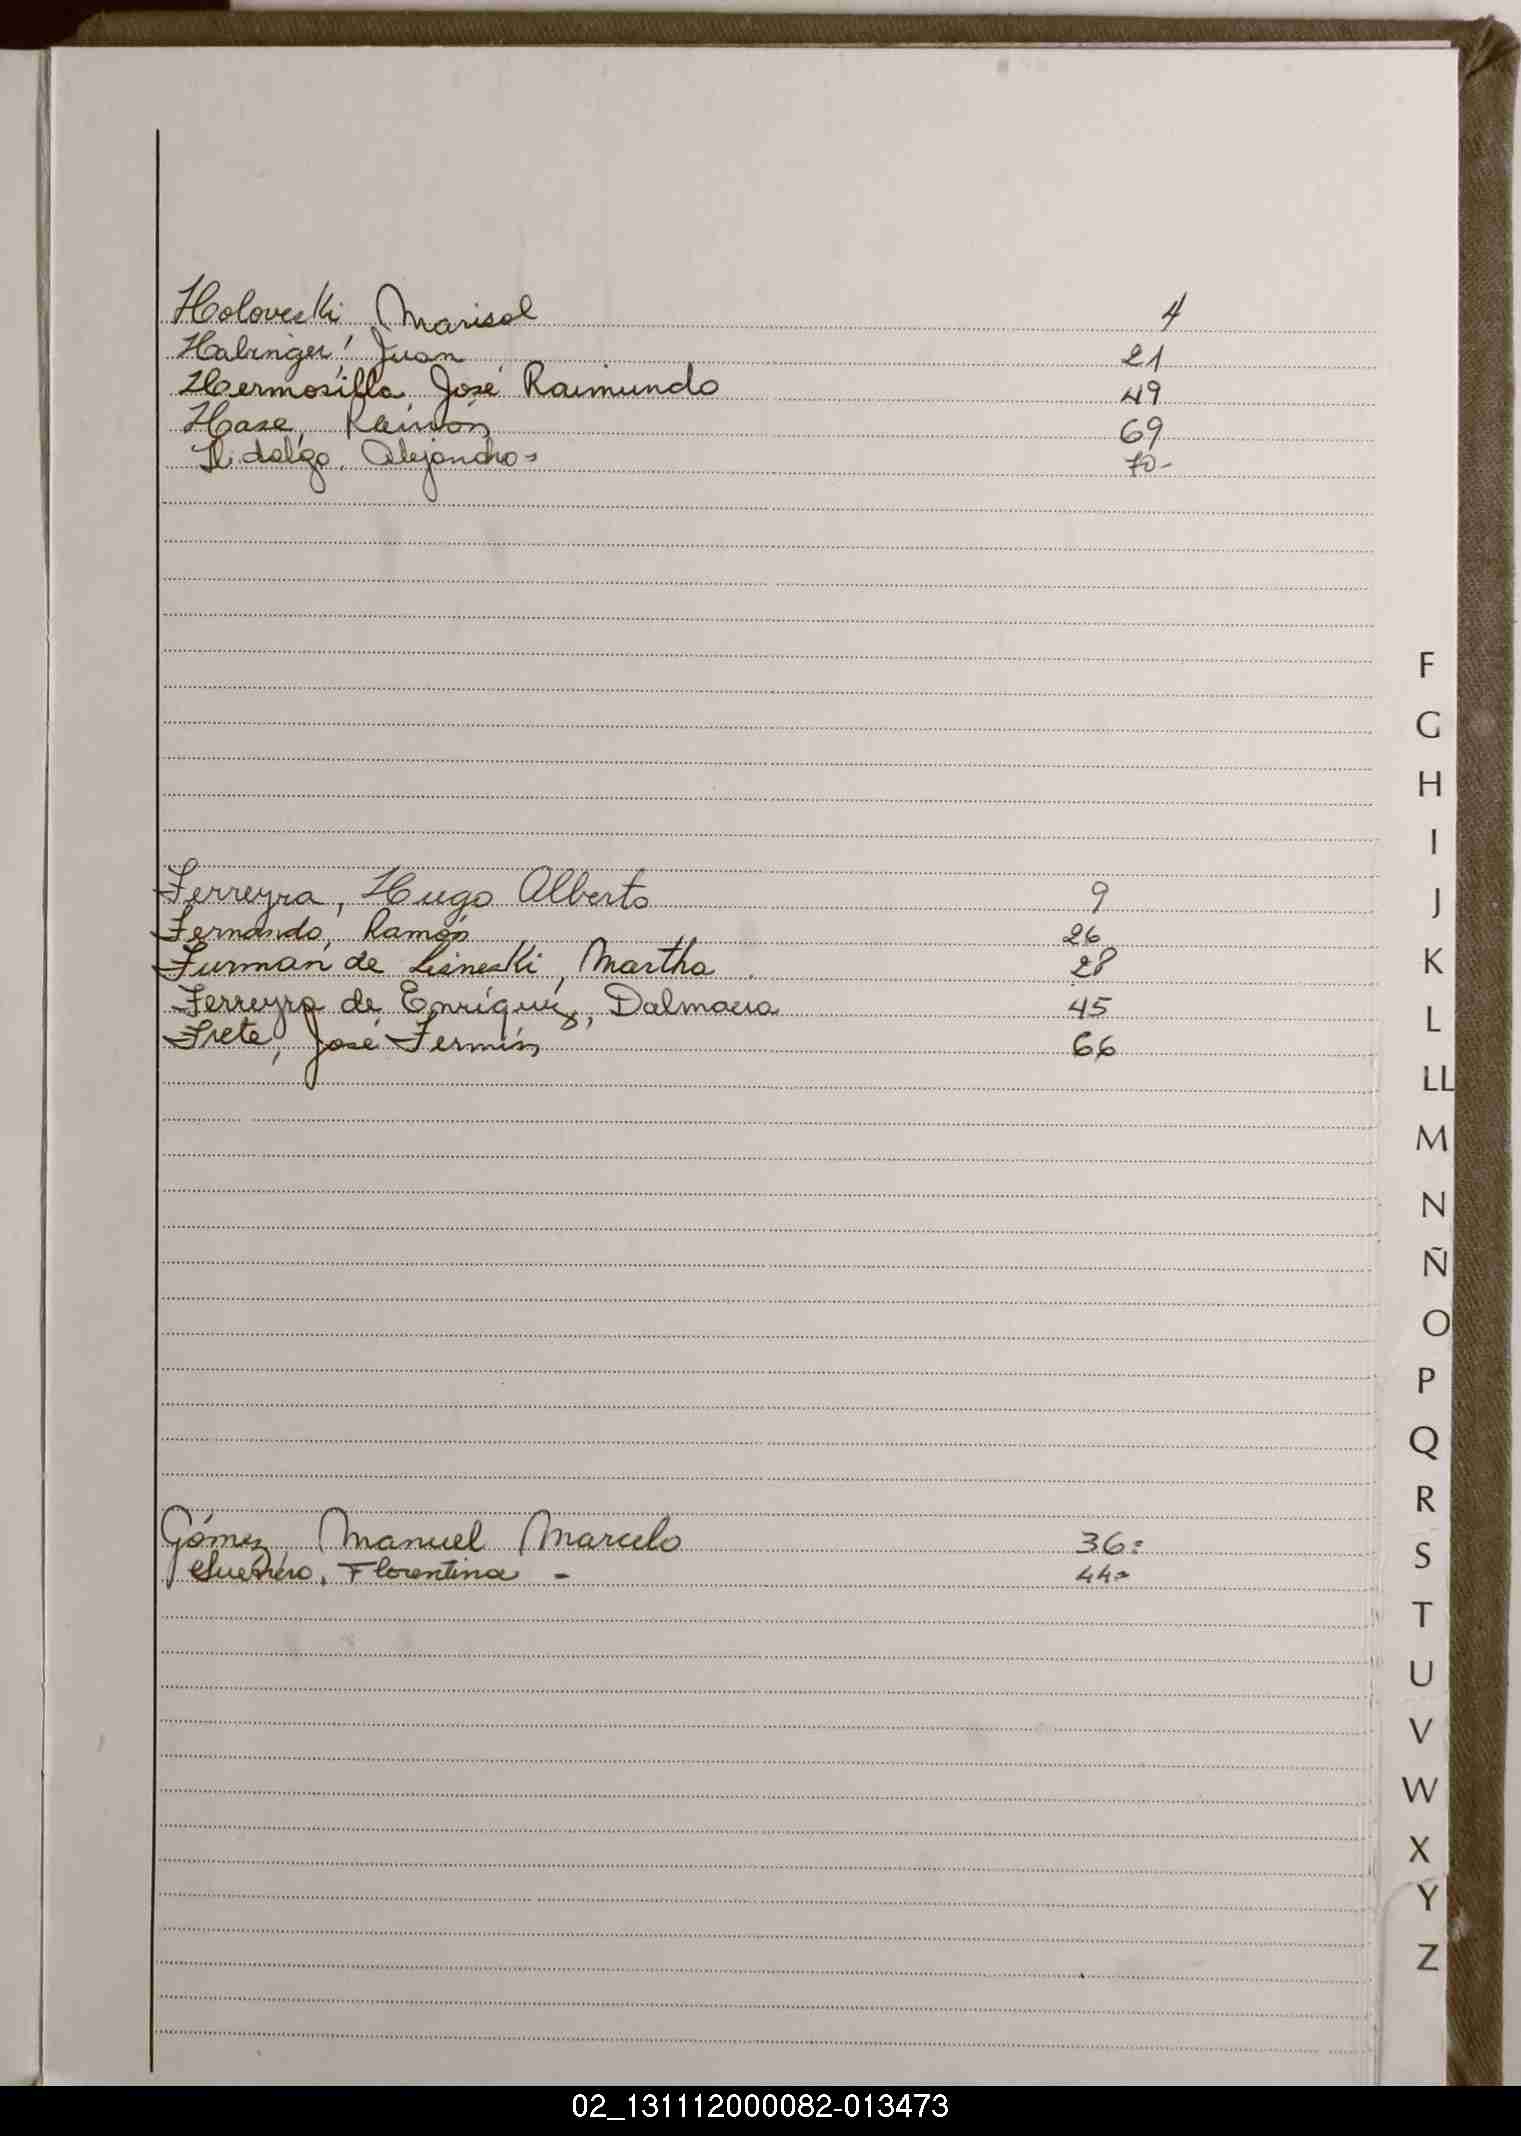 Holoveski, Marisol 4
Halinger, Juan 21
Hermosilla, José Raimundo 49
Hase, Ramón 69
Hidalgo, Alejandro= 70-
Ferreyra, Hugo Alberto 9
Fernando, Ramón 26
Furman de Lisneski, Martha 28
Ferreyra de Enríquez, Dalmacia 45
Frete, José Fermín 66
Gómez, Manuel Marcelo 36=
Guerrero, Florentina - 44=
F
G
H
I
J
K
L
LL
M
N
Ñ
O
P
Q
R
S
T
U
V
W
X
Y
Z
02_131112000082-013473